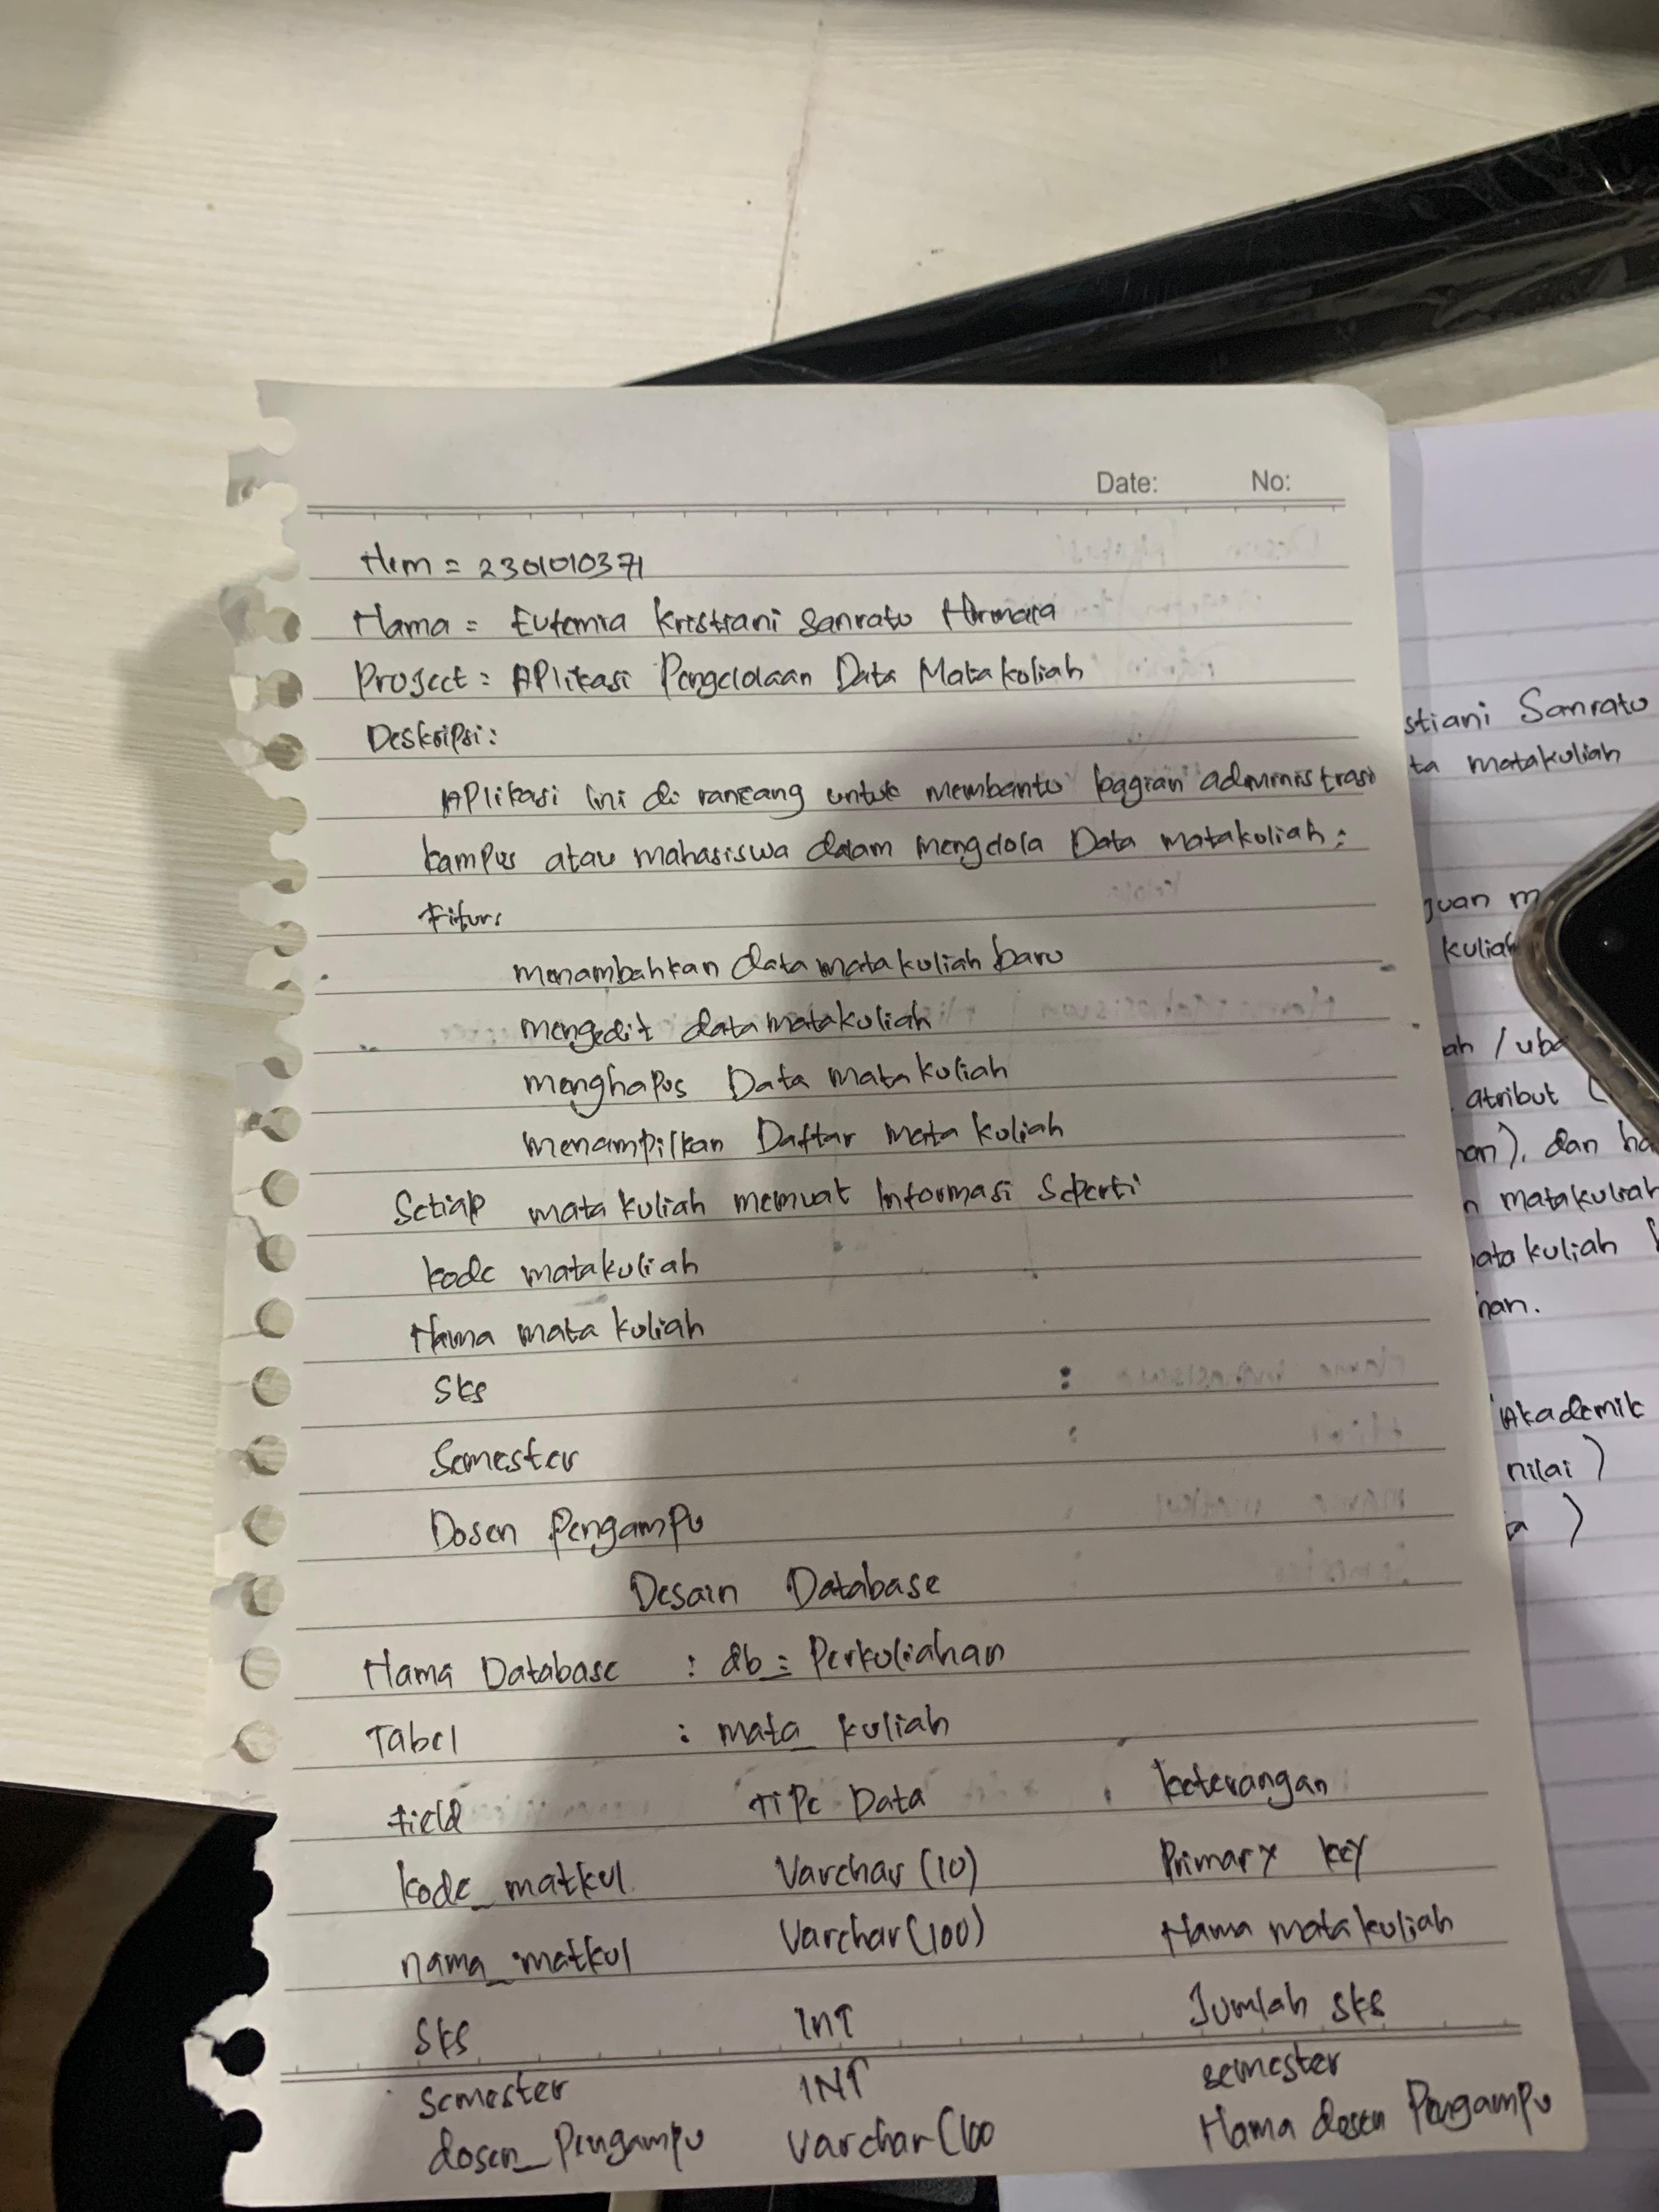 Date: No:
Nim = 2301010371
Nama = Eufemia Kristiani Sanrato
Project : Aplikasi Pengelolaan Data Matakuliah
Deskripsi :
Aplikasi ini di rancang untuk membantu bagian administrasi
kampus atau mahasiswa dalam mengelola Data matakuliah :
Fitur :
menambahkan data mata kuliah baru
mengedit data matakuliah
menghapus Data mata kuliah
menampilkan Daftar mata kuliah
Setiap mata kuliah memuat Informasi Seperti
kode matakuliah
Nama mata kuliah
Sks
Semester
Dosen Pengampu
Desain Database
Nama Database : db_= Perkuliahan
Tabel : mata_ kuliah
Field Tipe Data keterangan
kode_matkul Varchar (10) Primary key
nama_matkul Varchar (100) Nama mata kuliah
Sks INT Jumlah sks
Semester INT semester
dosen_Pengampu Varchar (100 Nama dosen Pengampu
stiani Sanrato
ta matakuliah
kuliah
atribut (
dan
matakuliah
kuliah
Akademik
nilai )
)